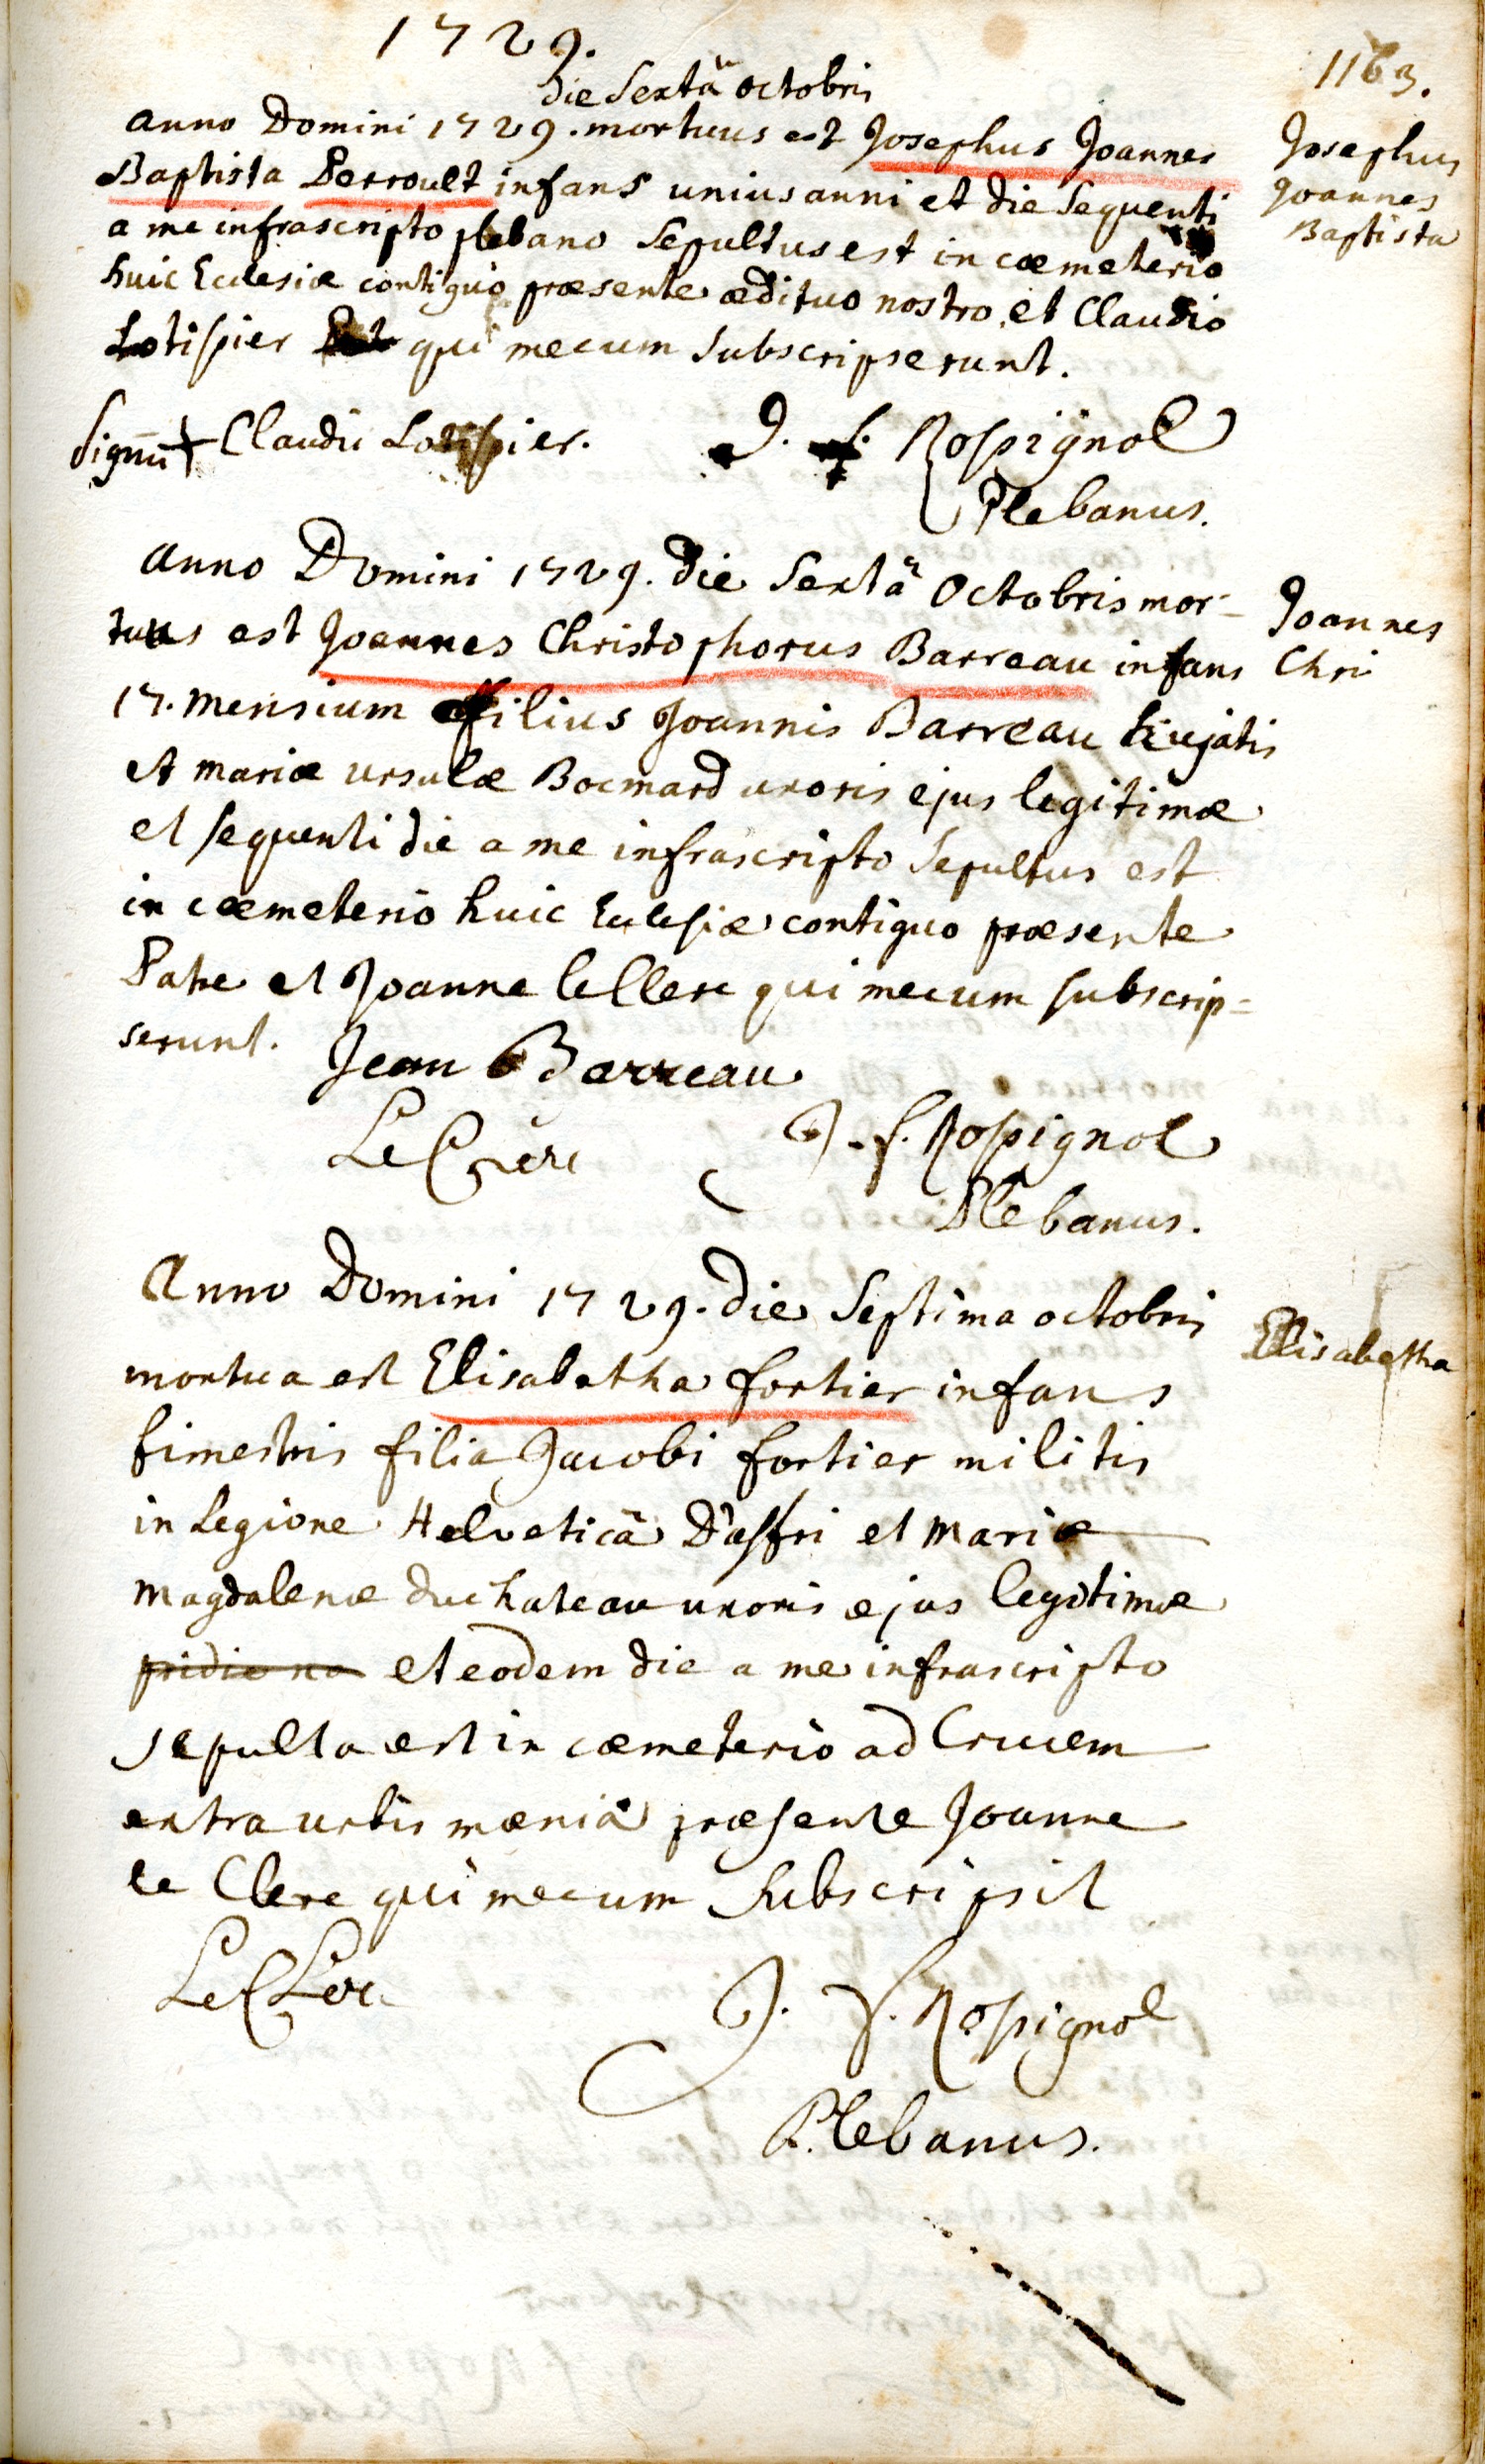 1729.
1163.
die Sextâ octobris
anno Domini 1729. mortuus est Josephus Joannes
Baptista Perroult infans unius anni et die sequenti
a me infrascripto plebano Sepultus est in cæmeterio
huic Ecclesiæ contiguo præsente ædituo nostro et Claudio
Lotispier qui mecum Subscripserunt.
Josephus
Joannes
Baptista
Signū + Claudii Lotispier.
J. f. Rospignol
Plebanus.
anno Domini 1729. die Sextâ Octobris mor-
tuus est Joannes Christophorus Barreau infans
17. mensium filius Joannis Barreau hujatis
et mariæ ursulæ Bocmard uxoris ejus legitimæ
et sequenti die a me infrascripto Sepultus est
in cæmeterio huic Ecclesiæ contiguo præsente
Patre et Joanne leClerc qui mecum subscrip=
serunt.
Joannes
Chri
Jean Barreau
LeClerc
J. f. Rospignol
Plebanus.
Anno Domini 1729. die Septima octobris
mortua est Elisabetha fortier infans
bimestris filia Jacobi fortier militis
in Legione Helveticâ D'affri et mariæ
magdalenæ duchateau uxoris ejus legitimæ
pridie et eodem die a me infrascripto
sepulta est in cæmeterio ad Crucem
extra urbis mænia præsente Joanne
le Clerc qui mecum Subscripsit
Elisabetha
LeClerc
J. f. Rospignol
Plebanus.